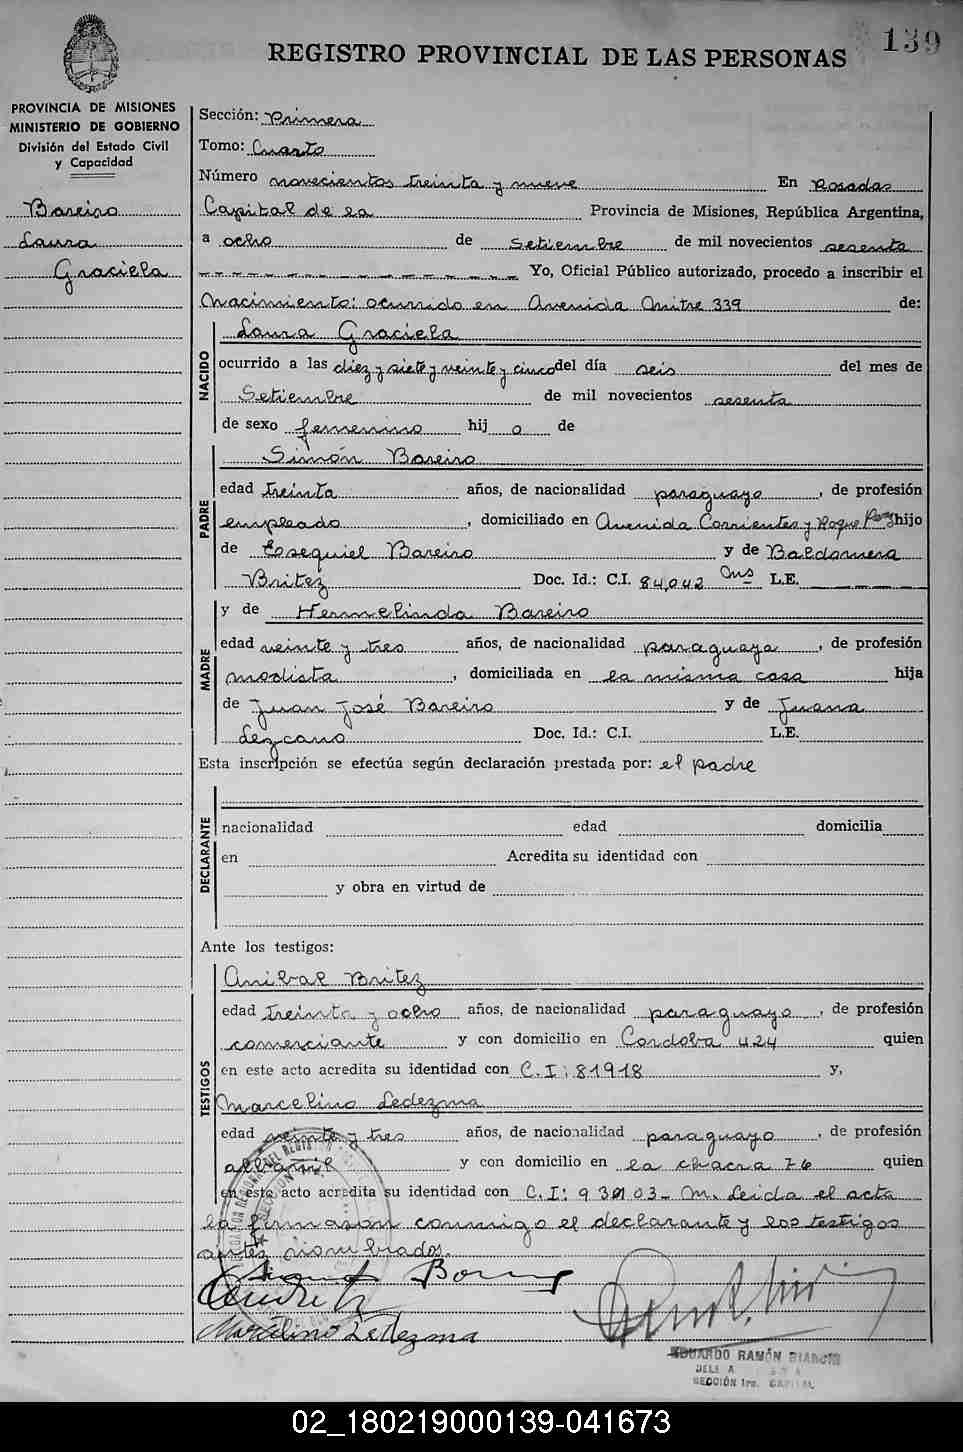 139
REGISTRO PROVINCIAL DE LAS PERSONAS
PROVINCIA DE MISIONES
MINISTERIO DE GOBIERNO
División del Estado Civil
y Capacidad
Bareiro
Laura
Graciela
Sección: Primera
Tomo: Cuarto
Número novecientos treinta y nueve En Posadas
Capital de la Provincia de Misiones, República Argentina,
a ocho de Setiembre de mil novecientos sesenta
Yo, Oficial Público autorizado, procedo a inscribir el
Nacimiento: ocurrido en Avenida Mitre 339 de:
NACIDO
Laura Graciela
ocurrido a las diez y siete y veinte y cinco del día seis del mes de
Setiembre de mil novecientos sesenta
de sexo femenino hij a de
PADRE
Simón Bareiro
edad treinta años, de nacionalidad paraguayo, de profesión
empleado, domiciliado en Avenida Corrientes y Roque Perez hijo
de Esequiel Bareiro y de Baldomera
Britez Doc. Id.: C.I. 84,042 Mns L.E.
MADRE
y de Hermelinda Bareiro
edad veinte y tres años, de nacionalidad paraguaya, de profesión
modista, domiciliada en la misma casa hija
de Juan José Bareiro y de Juana
Lezcano Doc. Id.: C.I. L.E.
Esta inscripción se efectúa según declaración prestada por: el padre
DECLARANTE
nacionalidad edad domicilia
en Acredita su identidad con
y obra en virtud de
Ante los testigos:
TESTIGOS
Anibal Britez
edad treinta y ocho años, de nacionalidad paraguayo, de profesión
comerciante y con domicilio en Cordoba 424 quien
en este acto acredita su identidad con C.I: 81918 y,
Marcelino Ledezma
edad veinte y tres años, de nacionalidad paraguayo, de profesión
albañil y con domicilio en la chacra 76 quien
en este acto acredita su identidad con C.I: 93103- M. Leida el acta
la firmaron conmigo el declarante y los testigos
antes nombrados.
Marcelino Ledezma
EDUARDO RAMÓN BIANCHI
SECCIÓN 1ra. CAPITAL
02_180219000139-041673